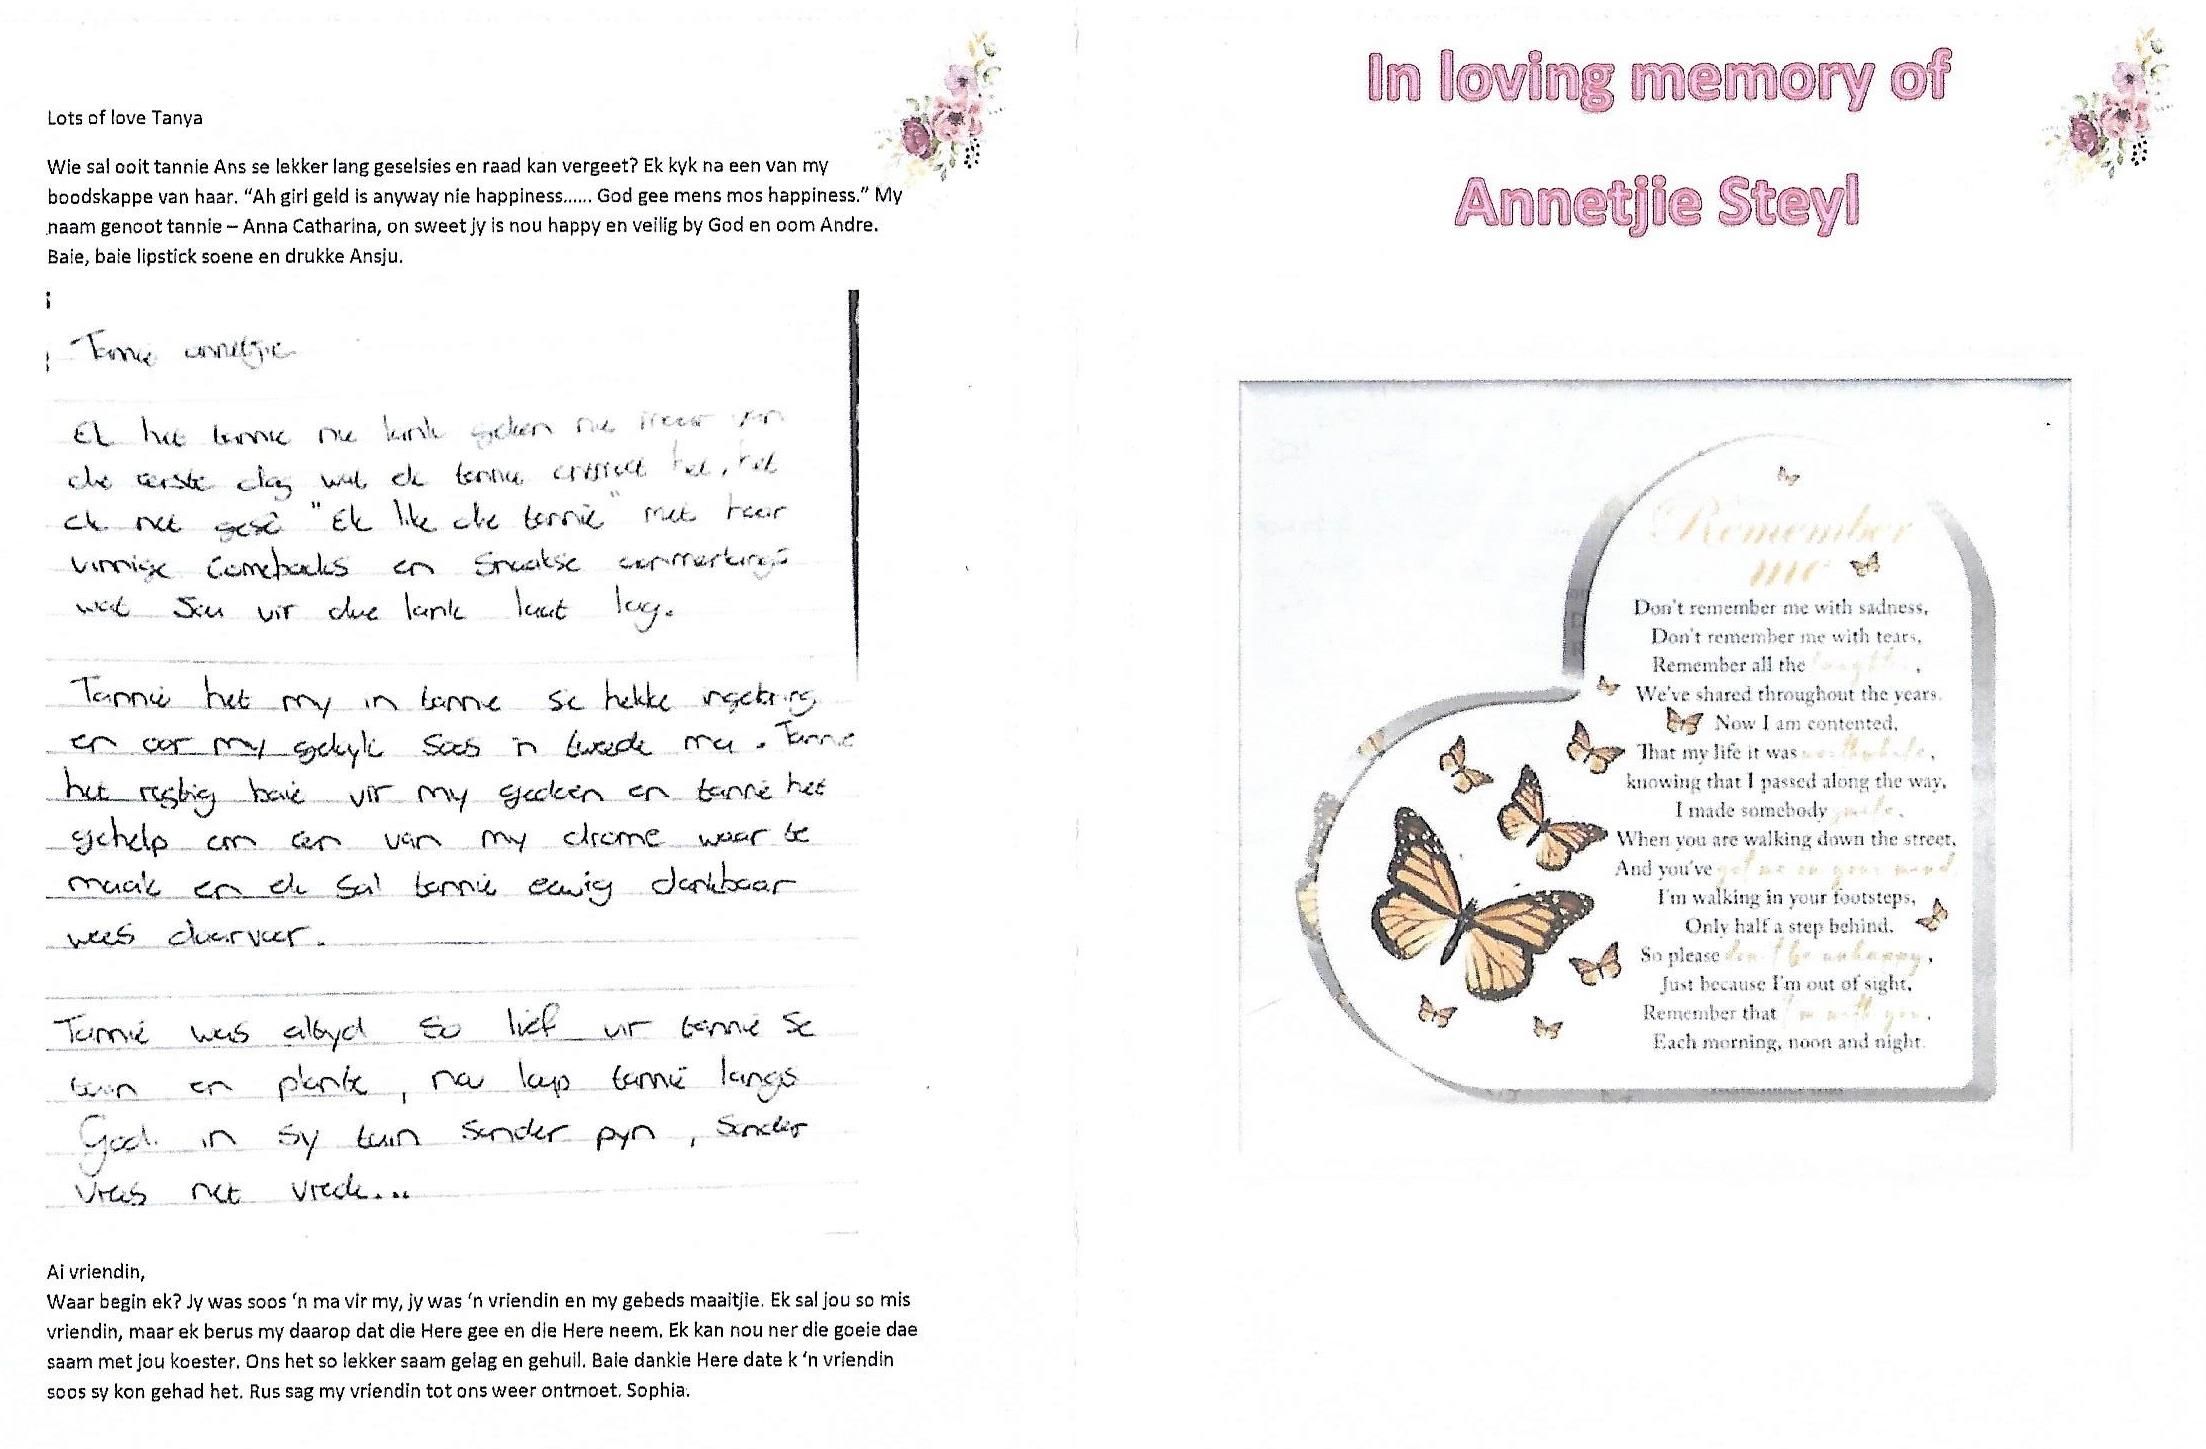 Lots of love Tanya
Wie sal ooit tannie Ans se lekker lang geselsies en raad kan vergeet? Ek kyk na een van my
boodskappe van haar. “Ah girl geld is anyway nie happiness...... God gee mens mos happiness.” My
naam genoot tannie – Anna Catharina, on sweet jy is nou happy en veilig by God en oom Andre.
Baie, baie lipstick soene en drukke Ansju.
Tannie annetjie
Ek het tannie nie lank geken nie maar van
die eerste dag wat ek tannie ontmoet het, het
ek net gesê "Ek like die tannie" met haar
vinnige Comebacks en Snaakse aanmerkings
wat Sou vir due lank laat lag.
Tannie het my in tannie se hekke ingebring
en oor my gekyk soos 'n tweede ma. Tannie
het regtig baie vir my gedoen en tannie het
gehelp om een van my drome waar te
maak en ek sal tannie eewig dankbaar
wees daarvoor.
Tannie was altyd so lief vir tannie se
tuin en plante, nou loop tannie langs
God in sy tuin sonder pyn, sonder
vrees net vrede...
Ai vriendin,
Waar begin ek? Jy was soos ‘n ma vir my, jy was ‘n vriendin en my gebeds maaitjie. Ek sal jou so mis
vriendin, maar ek berus my daarop dat die Here gee en die Here neem. Ek kan nou ner die goeie dae
saam met jou koester. Ons het so lekker saam gelag en gehuil. Baie dankie Here date k ‘n vriendin
soos sy kon gehad het. Rus sag my vriendin tot ons weer ontmoet. Sophia.
In loving memory of
Annetjie Steyl
Remember
me
Don't remember me with sadness,
Don't remember me with tears,
Remember all the laughter,
We've shared throughout the years.
Now I am contented,
That my life it was worthwhile,
knowing that I passed along the way,
I made somebody smile.
When you are walking down the street,
And you've got me on your mind
I'm walking in your footsteps,
Only half a step behind.
So please don't be unhappy,
Just because I'm out of sight,
Remember that I'm with you,
Each morning, noon and night.